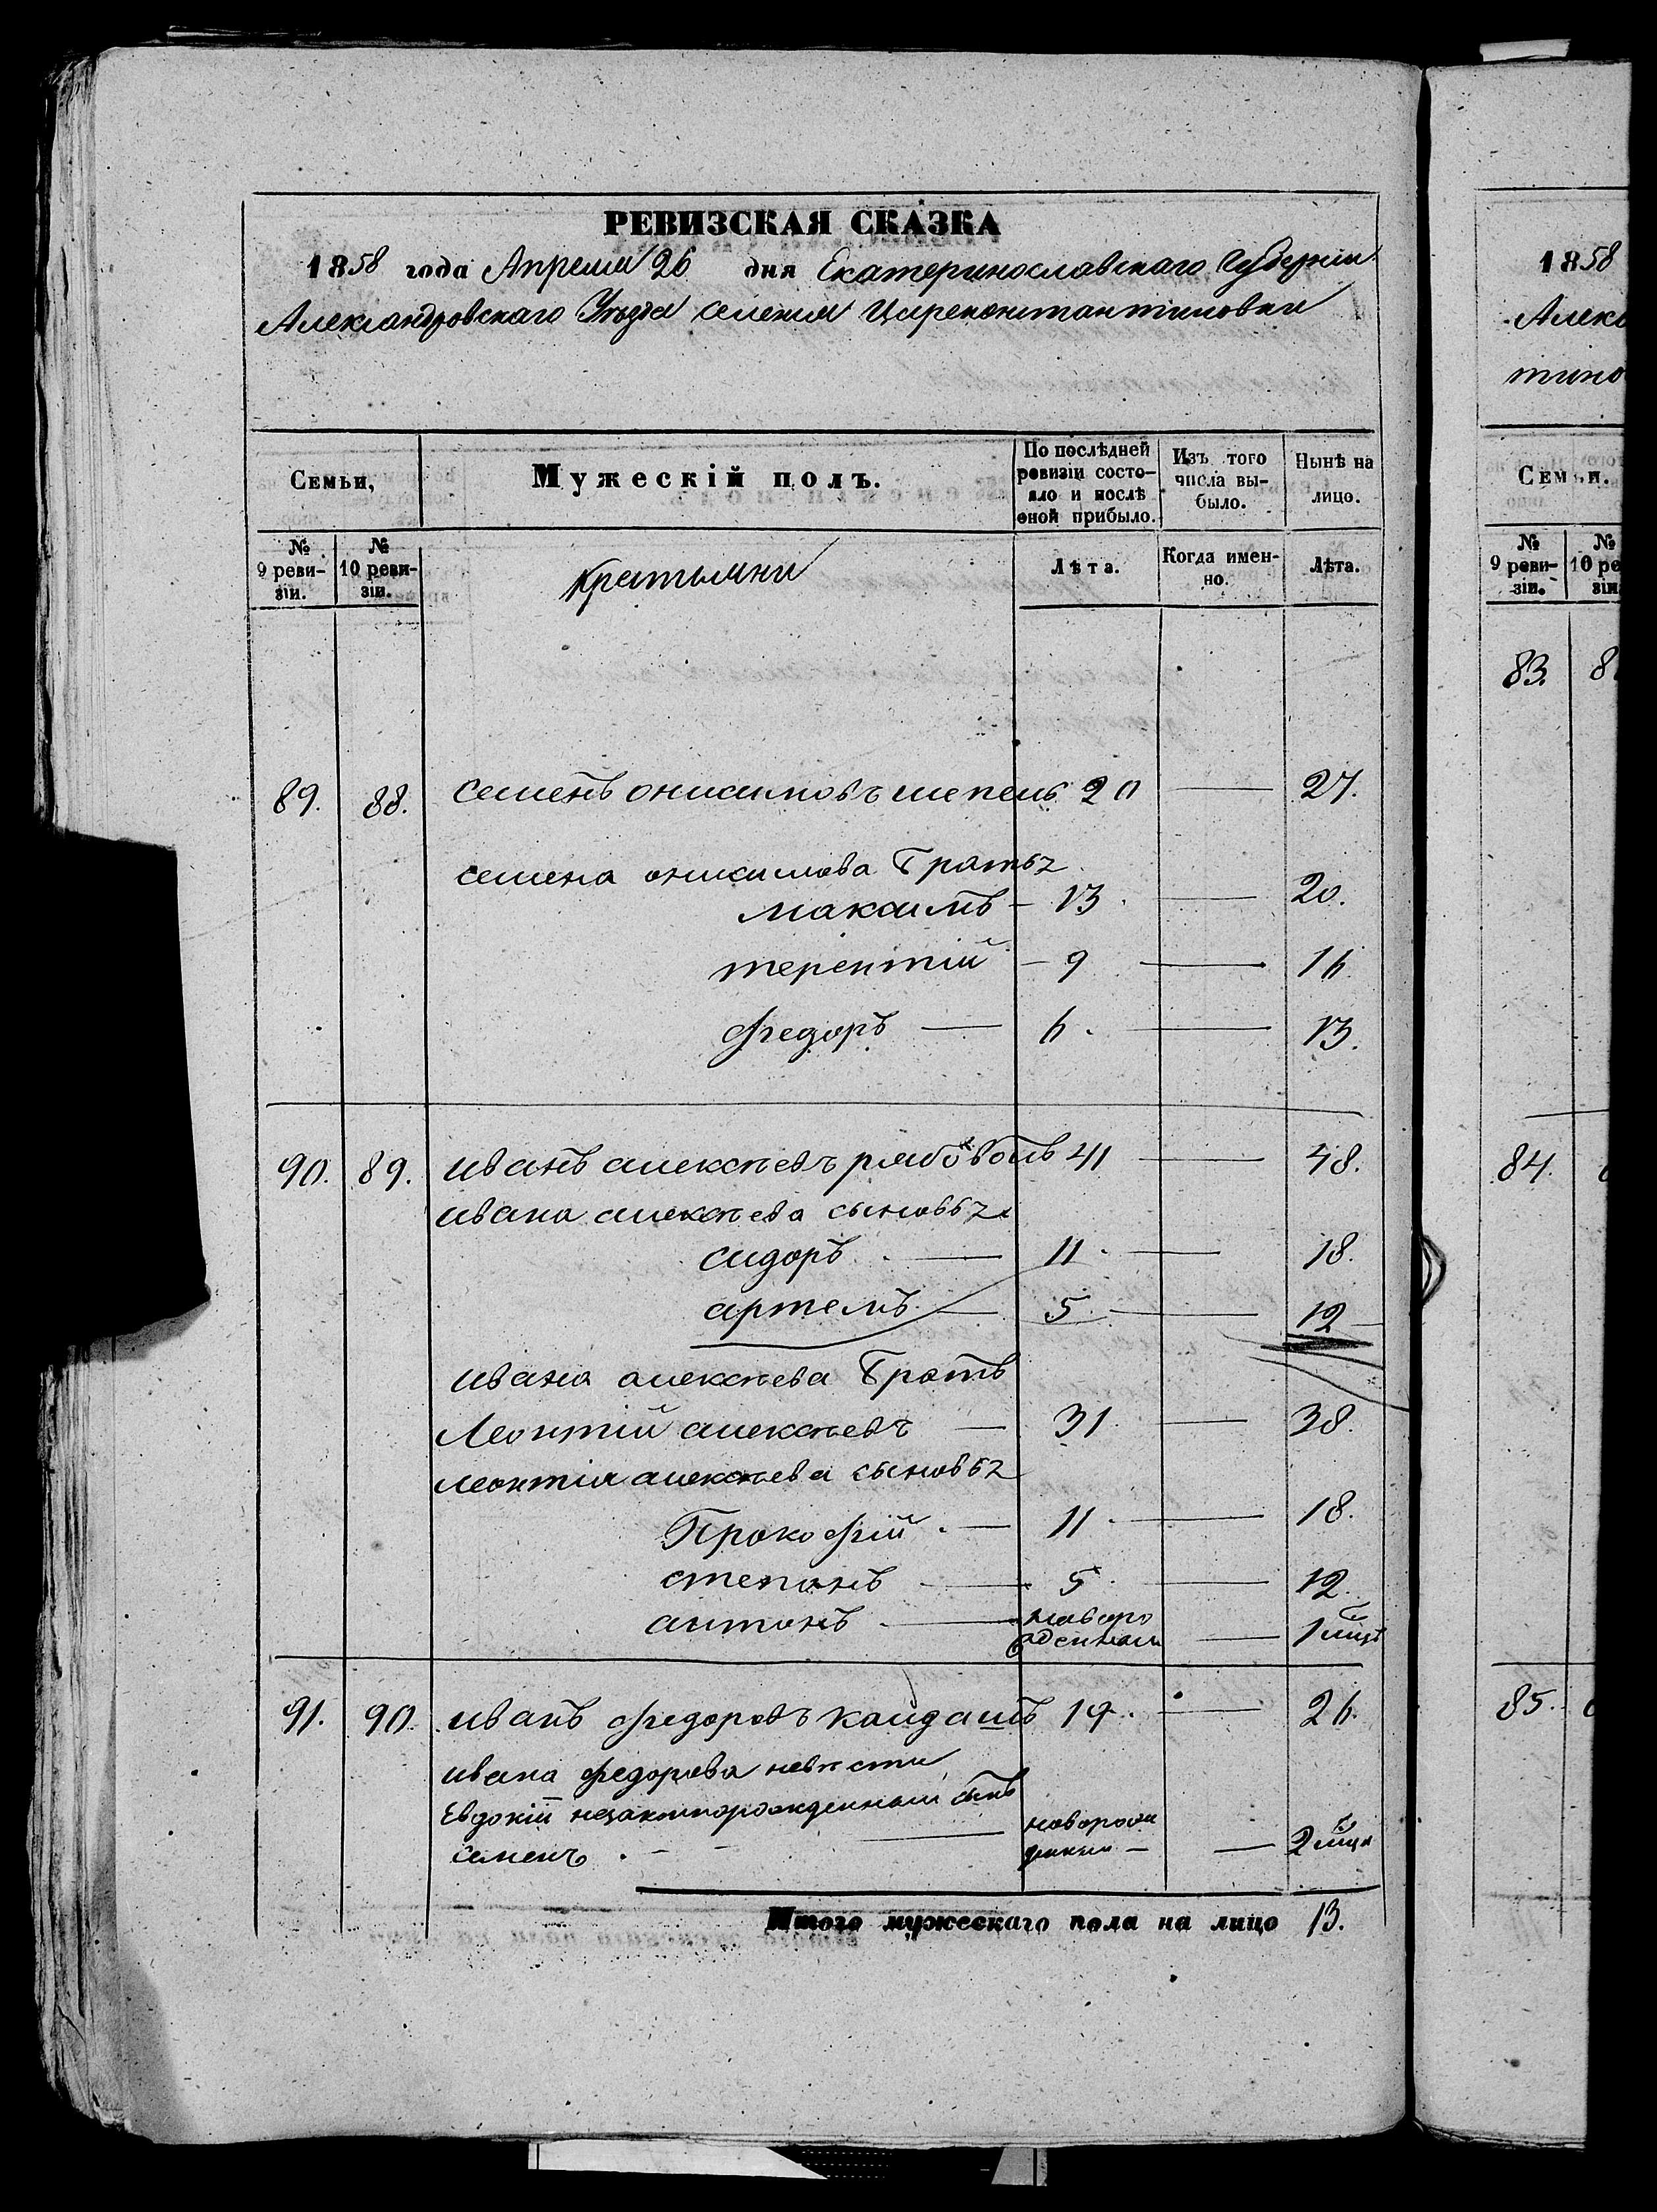 РЕВИЗСКАЯ СКАЗКА
1858 года Апреля 26 дня Екатеринославскаго Губернии
Александровскаго Уѣзда Селения Цареконстантиновки
Семьи,
Мужескій полъ.
По послѣдней ревизіи состояло и послѣ оной прибыло.
Изъ того числа выбыло.
Нынѣ на лицо.
№ 9 ревизіи.
№ 10 ревизіи.
Крестьяни
Лѣта.
Когда именно.
Лѣта.
89. 88. Семенъ онисимовъ шепель 20 — 27.
Семена онисимова Братьz
максимъ — 13. — 20.
терентій — 9 — 16
Федоръ — 6. — 13.
90. 89. иванъ алексѣевъ рябоволъ 41 — 48.
ивана алексѣева сыновьz
сидоръ — 11. — 18.
артемъ — 5 — 12
ивана алексѣева Братъ
Леонтій алексѣевъ — 31. — 38.
леонтія алексѣева сыновьz
Прокофій — 11. — 18.
степанъ — 5 — 12.
антонъ — — 1
91. 90. иванъ Федоровъ кайдашъ 19. — 26.
ивана Федорова невѣсти
Евдокій незаконорожденный сынъ
Семенъ — — 2
Итого мужескаго пола на лицо 13.
1858
Алекс
тино
Семьи.
№ 9 ревизіи.
№ 10 ре
зіи
83. 8
84.
85.